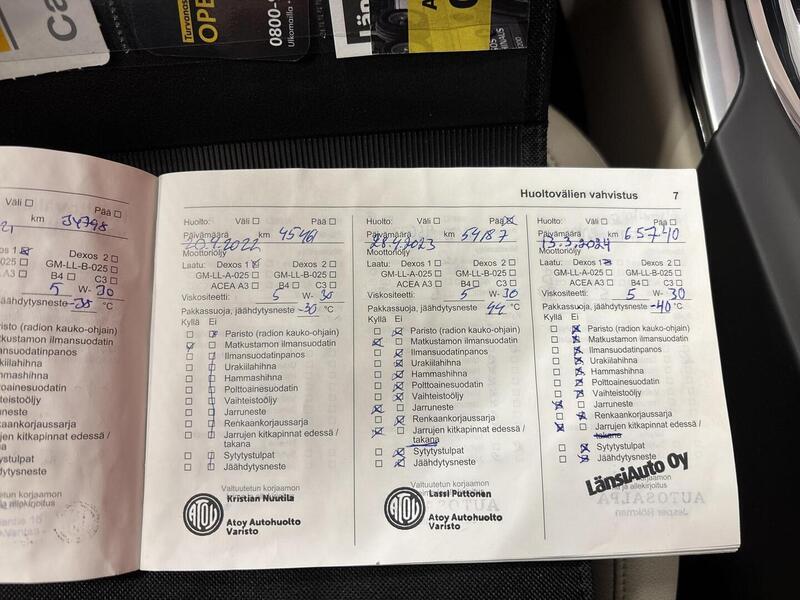 ca
Turvanas
OPE
0800-
Ulkomailla +
Län
Huoltovälien vahvistus 7
Väli ☐ Pää ☐
km 34798
Dexos 1 ☒ Dexos 2 ☐
GM-LL-B-025 ☐
A3 ☐ B4 ☐ C3 ☐
5 W- 30
jäähdytysneste -35 °C
Paristo (radion kauko-ohjain)
Matkustamon ilmansuodatin
Ilmansuodatinpanos
Urakiilahihna
Hammashihna
Polttoainesuodatin
Vaihteistoöljy
Jarruneste
Renkaankorjaussarja
Jarrujen kitkapinnat edessä /
takana
Sytytystulpat
Jäähdytysneste
Huolto: Väli ☐ Pää ☐
Päivämäärä km 45461
20.4.2022
Moottoriöljy
Laatu: Dexos 1 ☒ Dexos 2 ☐
GM-LL-A-025 ☐ GM-LL-B-025 ☐
ACEA A3 ☐ B4 ☐ C3 ☐
Viskositeetti: 5 W- 30
Pakkassuoja, jäähdytysneste -30 °C
Kyllä Ei
☐ ☒ Paristo (radion kauko-ohjain)
☒ ☐ Matkustamon ilmansuodatin
☐ ☐ Ilmansuodatinpanos
☐ ☐ Urakiilahihna
☐ ☐ Hammashihna
☐ ☐ Polttoainesuodatin
☐ ☐ Vaihteistoöljy
☐ ☐ Jarruneste
☐ ☐ Renkaankorjaussarja
☐ ☐ Jarrujen kitkapinnat edessä /
takana
☐ ☐ Sytytystulpat
☐ ☐ Jäähdytysneste
Valtuutetun korjaamon
Kristian Nuutila
ATOY
Atoy Autohuolto
Varisto
Huolto: Väli ☐ Pää ☒
Päivämäärä km 54187
28.4.2023
Moottoriöljy
Laatu: Dexos 1 ☒ Dexos 2 ☐
GM-LL-A-025 ☐ GM-LL-B-025 ☐
ACEA A3 ☐ B4 ☐ C3 ☐
Viskositeetti: 5 W- 30
Pakkassuoja, jäähdytysneste 44 °C
Kyllä Ei
☐ ☒ Paristo (radion kauko-ohjain)
☒ ☐ Matkustamon ilmansuodatin
☐ ☒ Ilmansuodatinpanos
☐ ☒ Urakiilahihna
☐ ☒ Hammashihna
☐ ☒ Polttoainesuodatin
☐ ☒ Vaihteistoöljy
☒ ☐ Jarruneste
☐ ☒ Renkaankorjaussarja
☒ ☐ Jarrujen kitkapinnat edessä /
takana
☐ ☒ Sytytystulpat
☐ ☒ Jäähdytysneste
Valtuutetun korjaamon
Lassi Puttonen
ATOY
Atoy Autohuolto
Varisto
Huolto: Väli ☐ Pää ☐
Päivämäärä km 65740
13.3.2024
Moottoriöljy
Laatu: Dexos 1 ☒ Dexos 2 ☐
GM-LL-A-025 ☐ GM-LL-B-025 ☐
ACEA A3 ☐ B4 ☐ C3 ☐
Viskositeetti: 5 W- 30
Pakkassuoja, jäähdytysneste -40 °C
Kyllä Ei
☐ ☒ Paristo (radion kauko-ohjain)
☐ ☒ Matkustamon ilmansuodatin
☐ ☒ Ilmansuodatinpanos
☐ ☒ Urakiilahihna
☐ ☒ Hammashihna
☐ ☒ Polttoainesuodatin
☐ ☒ Vaihteistoöljy
☒ ☐ Jarruneste
☐ ☒ Renkaankorjaussarja
☒ ☐ Jarrujen kitkapinnat edessä /
takana
☐ ☒ Sytytystulpat
☐ ☒ Jäähdytysneste
LänsiAuto Oy
AUTOSALPA